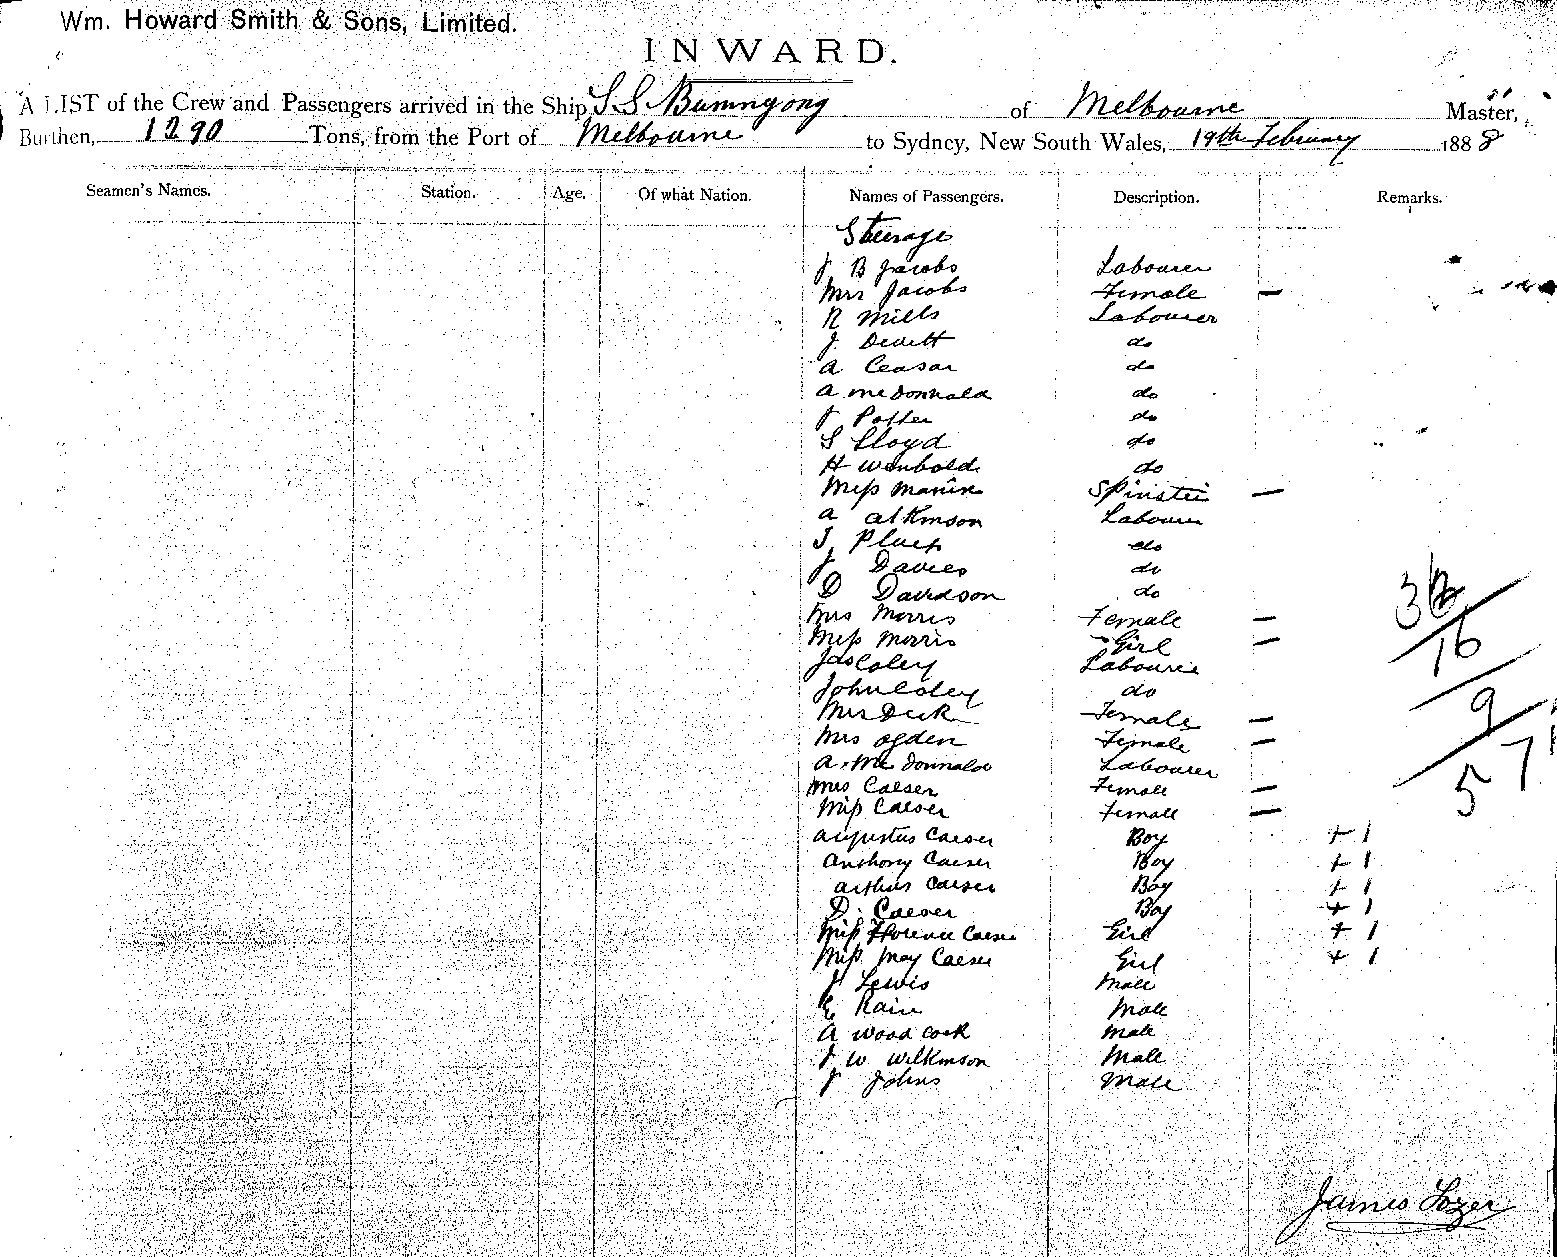 Wm. Howard Smith & Sons, Limited.
INWARD.
A LIST of the Crew and Passengers arrived in the Ship SS Buninyong of Melbourne Master,
Burthen, 1290 Tons, from the Port of Melbourne to Sydney, New South Wales, 19th February 1888
Seamen's Names. Station. Age. Of what Nation. Names of Passengers. Description. Remarks.
Steerage
J B Jacobs Labourer
Mrs Jacobs Female —
R Mills Labourer
J. Devitt do
A Ceasar do
A McDonnald do
J Potter do
S Lloyd do
H Wenbold do
Miss Spinster —
A Atkinson Labourer
J do
J Davies do
D Davidson do
Mrs Morris Female —
Miss Morris Girl —
Jas Coley Labourer
John Coley do
Mrs Female —
Mrs Ogden Female —
A. McDonnald Labourer
Mrs Caeser Female —
Miss Caeser Female —
Augustus Caeser Boy + 1
Anthony Caeser Boy + 1
Arthur Caeser Boy + 1
D. Caeser Boy + 1
Miss Florence Caeser Girl + 1
Miss May Caeser Girl + 1
J Lewis Male
E Rain Male
A Woodcock Male
J W Wilkinson Male
J Johns Male
16
9
57
James Lozer